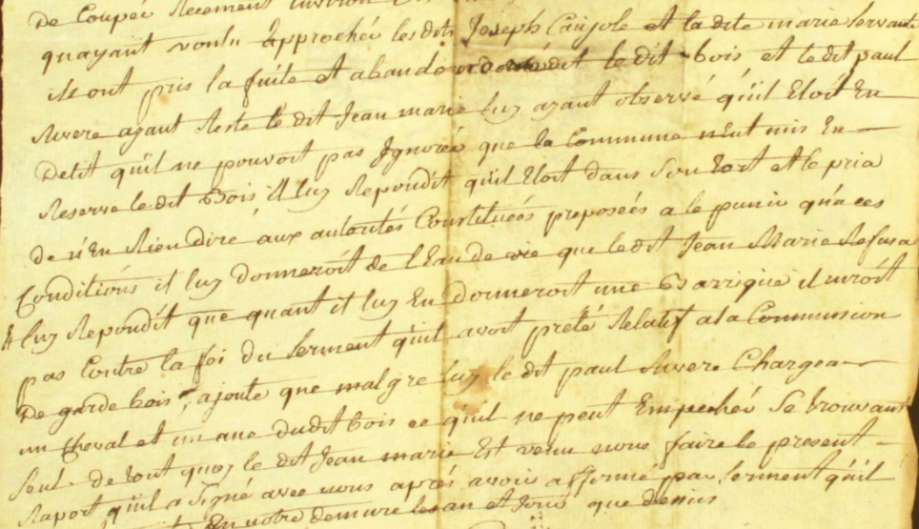 De Coupée recement environ
quayant voulu approcher lesdits Joseph Caujole et la dite marie servante
ils ont pris la fuite et abandonné ledit bois, et ledit paul
Rivere ayant resté le dit Jean marie luy ayant observé qu'il Etoit En
Delit qu'il ne pouvoit pas Ignorer que la Commune n'eut mis En
Reserve ledit Bois il luy Repondit qu'il Etoit dans son tort et le pria
de n'En Rien Dire aux autorités Constituées preposées a le punir qu'a ces
Conditions il luy donneroit de l'Eau de vie que ledit Jean Marie Refusa
& luy Repondit que quant il luy En donneroit une Barrique il n'iroit
pas Contre la foi du Serment qu'il avoit preté Relatif a la Commission
De garde bois, ajoute que malgre luy le dit paul Rivere Chargea
un Cheval et un ane dudit bois ce qu'il ne peut Empecher Se trouvant
Seul. de tout quoy le dit Jean marie Est venu nous faire le present
Raport qu'il a Signé avec nous aprés avoir affirmé par Serment qu'il
En notre demeure les an et jour que dessus